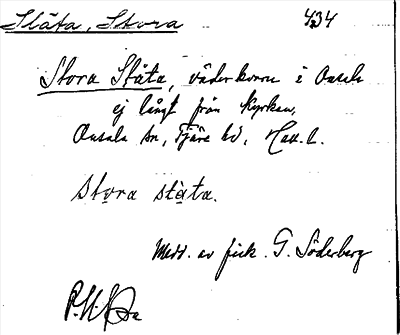 Ståta, Stora 434
Stora Ståta, väderkvarn i Onsala
ej långt från kyrkan,
Onsala sn, Fjäre hd, Hall. l.
Stora ståta.
Medd. av fisk. G. Söderberg